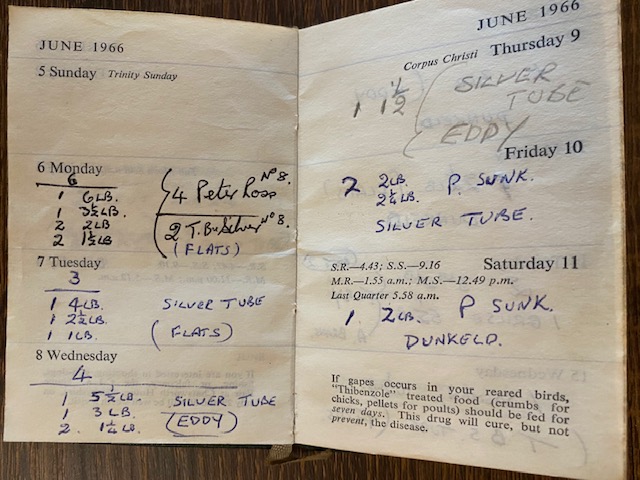 JUNE 1966
5 Sunday Trinity Sunday
6 Monday
6
1 6LB.
1 3½LB.
2 2LB
2 1½LB
4 Peter Ross Nº8.
2 T. B. Silver Nº8.
(FLATS)
7 Tuesday
3
1 4LB.
1 2½LB.
1 1LB.
SILVER TUBE
(FLATS)
8 Wednesday
4
1 5½LB.
1 3LB.
2. 1¼LB.
SILVER TUBE
(EDDY)
JUNE 1966
Corpus Christi Thursday 9
1 1½
SILVER
TUBE
EDDY
Friday 10
2 2LB. P. SUNK.
2¼LB.
SILVER TUBE.
S.R.—4.43; S.S.—9.16 Saturday 11
M.R.—1.55 a.m.; M.S.—12.49 p.m.
Last Quarter 5.58 a.m.
1 2LB. P SUNK.
DUNKELD.
If gapes occurs in your reared birds,
"Thibenzole" treated food (crumbs for
chicks, pellets for poults) should be fed for
seven days. This drug will cure, but not
prevent, the disease.